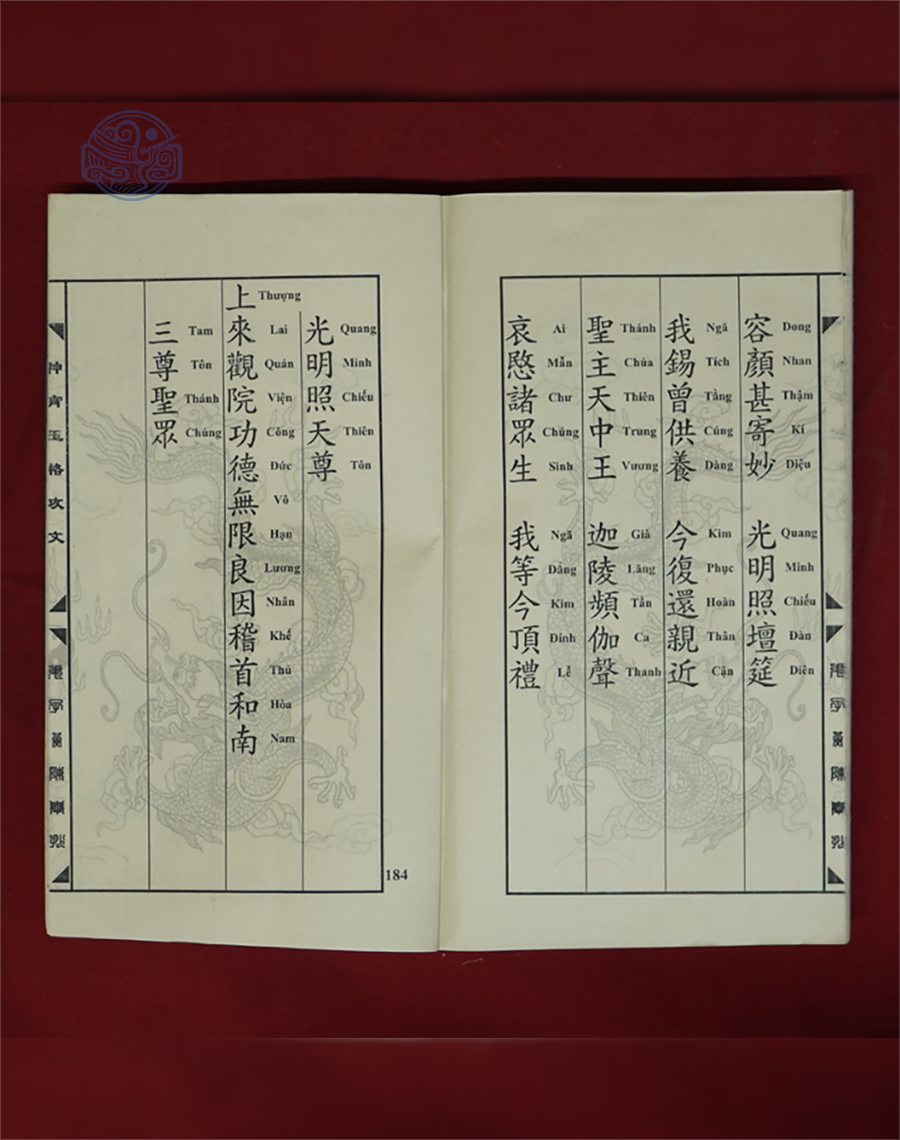 容顏甚寄妙 光明照壇筵
Dong Nhan Thậm Kí Diệu Quang Minh Chiếu Đàn Diên
我錫曾供養 今復還親近
Ngã Tích Tằng Cúng Dàng Kim Phục Hoàn Thân Cận
聖主天中王 迦陵頻伽聲
Thánh Chúa Thiên Trung Vương Già Lăng Tần Ca Thanh
哀愍諸眾生 我等今頂禮
Ai Mẫn Chư Chúng Sinh Ngã Đẳng Kim Đỉnh Lễ
光明照天尊
Quang Minh Chiếu Thiên Tôn
上來觀院功德無限良因稽首和南
Thượng Lai Quán Viện Công Đức Vô Hạn Lương Nhân Khể Thủ Hòa Nam
三尊聖眾
Tam Tôn Thánh Chúng
184